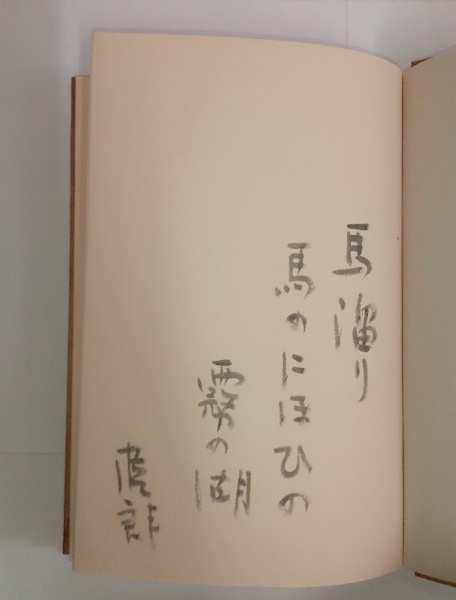 馬溜り
馬のにほひの
霧の湖